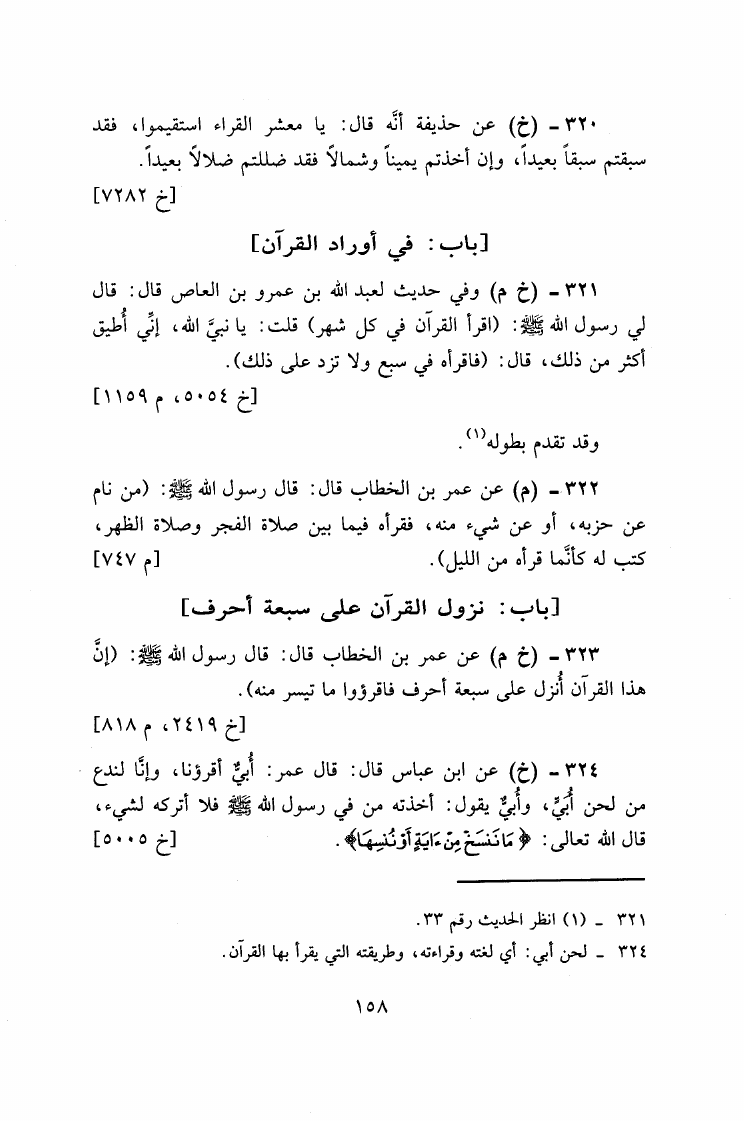 ٣٢٠ ـ (خ) عن حذيفة أنَّه قال: يا معشر القراء استقيموا، فقد
سبقتم سبقاً بعيداً، وإن أخذتم يميناً وشمالاً فقد ضللتم ضلالاً بعيداً.
[خ ٧٢٨٢]
[باب: في أوراد القرآن]
٣٢١ ـ (خ م) وفي حديث لعبد الله بن عمرو بن العاص قال: قال
لي رسول الله ﷺ: (اقرأ القرآن في كل شهر) قلت: يا نبيَّ الله، إنِّي أُطيق
أكثر من ذلك، قال: (فاقرأه في سبع ولا تزد على ذلك).
[خ ٥٠٥٤، م ١١٥٩]
وقد تقدم بطوله(١).
٣٢٢ ـ (م) عن عمر بن الخطاب قال: قال رسول الله ﷺ: (من نام
عن حزبه، أو عن شيء منه، فقرأه فيما بين صلاة الفجر وصلاة الظهر،
كتب له كأنَّما قرأه من الليل). [م ٧٤٧]
[باب: نزول القرآن على سبعة أحرف]
٣٢٣ ـ (خ م) عن عمر بن الخطاب قال: قال رسول الله ﷺ: (إنَّ
هذا القرآن أُنزل على سبعة أحرف فاقرؤوا ما تيسر منه).
[خ ٢٤١٩، م ٨١٨]
٣٢٤ ـ (خ) عن ابن عباس قال: قال عمر: أُبيٌّ أقرؤنا، وإنَّا لندع
من لحن أُبَيٍّ، وأُبيٌّ يقول: أخذته من في رسول الله ﷺ فلا أتركه لشيء،
قال الله تعالى: ﴿مَا نَنسَخْ مِنْ ءَايَةٍ أَوْ نُنسِهَا﴾. [خ ٥٠٠٥]
٣٢١ ـ (١) انظر الحديث رقم ٣٣.
٣٢٤ ـ لحن أبي: أي لغته وقراءته، وطريقته التي يقرأ بها القرآن.
١٥٨